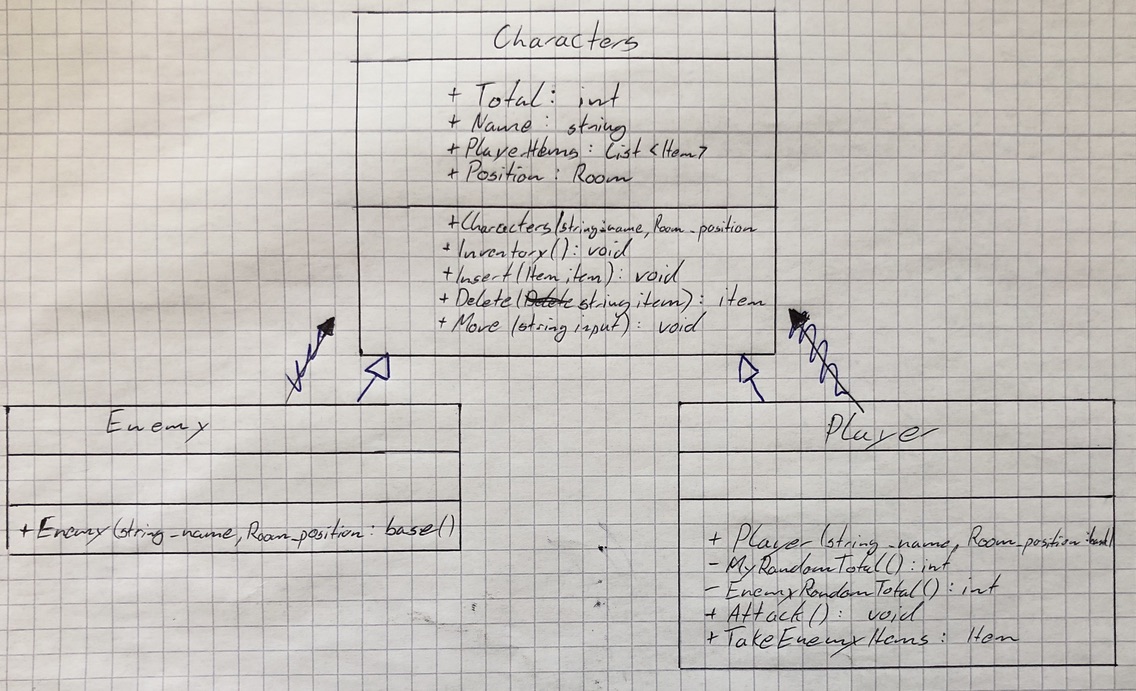 Characters
+ Total: int
+ Name: string
+ PlayerItems: List <Item>
+ Position: Room
+Characters(string_name, Room_position
+ Inventory(): void
+Insert(Item item): void
+ Delete(string item): item
+ Move (string input): void
Enemy
+ Enemy(string_name, Room_position: base()
Player
+ Player(string_name, Room_position:base()
- MyRandomTotal(): int
- EnemyRandomTotal(): int
+ Attack(): void
+ TakeEnemyItems: Item